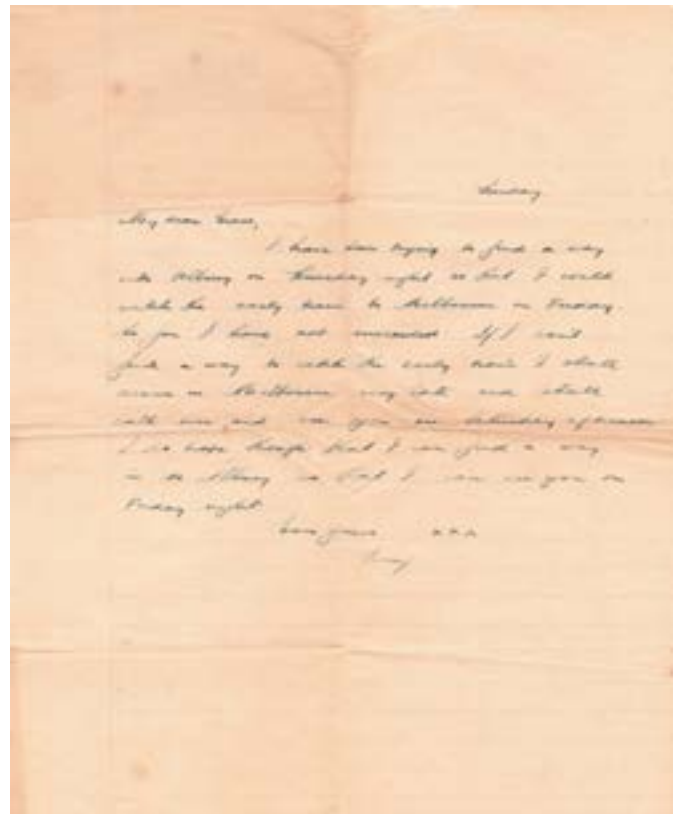 My dear
I have been trying to find a way
into Albury on Thursday night so that I could
catch the early train to Melbourne on Friday
So far I have not succeeded If I can't
find a way to catch the early train I shall
arrive in Melbourne very late and shall
and see you on Saturday afternoon
I do hope though that I can find a way
in to Albury so that I can see you on
Friday night
Love xxx